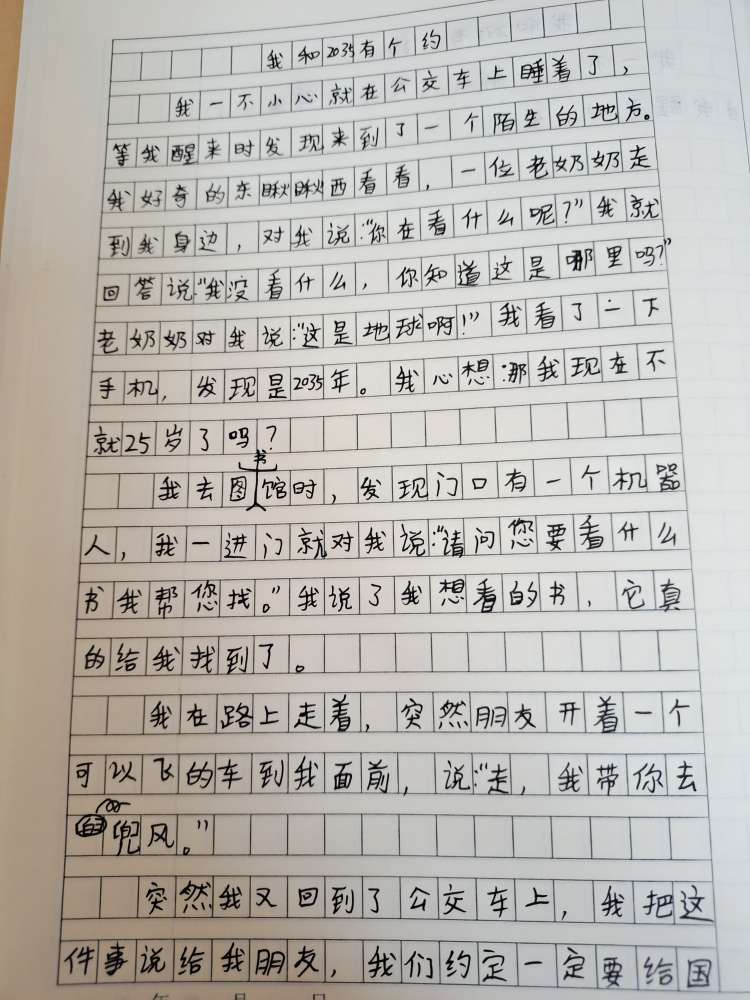 我和2035有个约
我一不小心就在公交车上睡着了，
等我醒来时发现来到了一个陌生的地方。
我好奇的东瞅瞅西看看，一位老奶奶走
到我身边，对我说：“你在看什么呢？”我就
回答说：“我没看什么，你知道这是哪里吗？”
老奶奶对我说：“这是地球啊！”我看了一下
手机，发现是2035年。我心想：那我现在不
就25岁了吗？
我去图书馆时，发现门口有一个机器
人，我一进门就对我说：“请问您要看什么
书我帮您找。”我说了我想看的书，它真
的给我找到了。
我在路上走着，突然朋友开着一个
可以飞的车到我面前，说：“走，我带你去
兜风。”
突然我又回到了公交车上，我把这
件事说给我朋友，我们约定一定要给国
年 月 日